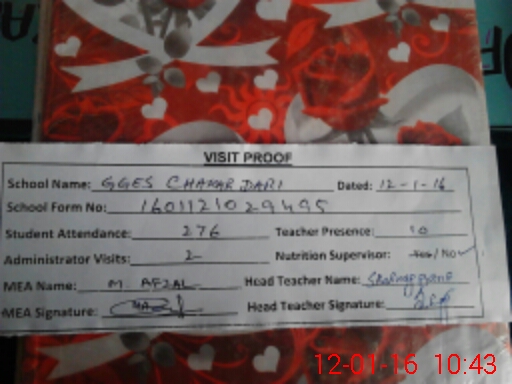 VISIT PROOF
School Name: GGES CHAHAR DARI Dated: 12-1-16
School Form No: 16011210 29495
Student Attendance: 276 Teacher Presence: 10
Administrator Visits: 2 Nutrition Supervisor: Yes / No
MEA Name: M AFZAL Head Teacher Name:
MEA Signature: Head Teacher Signature:
12-01-16 10:43